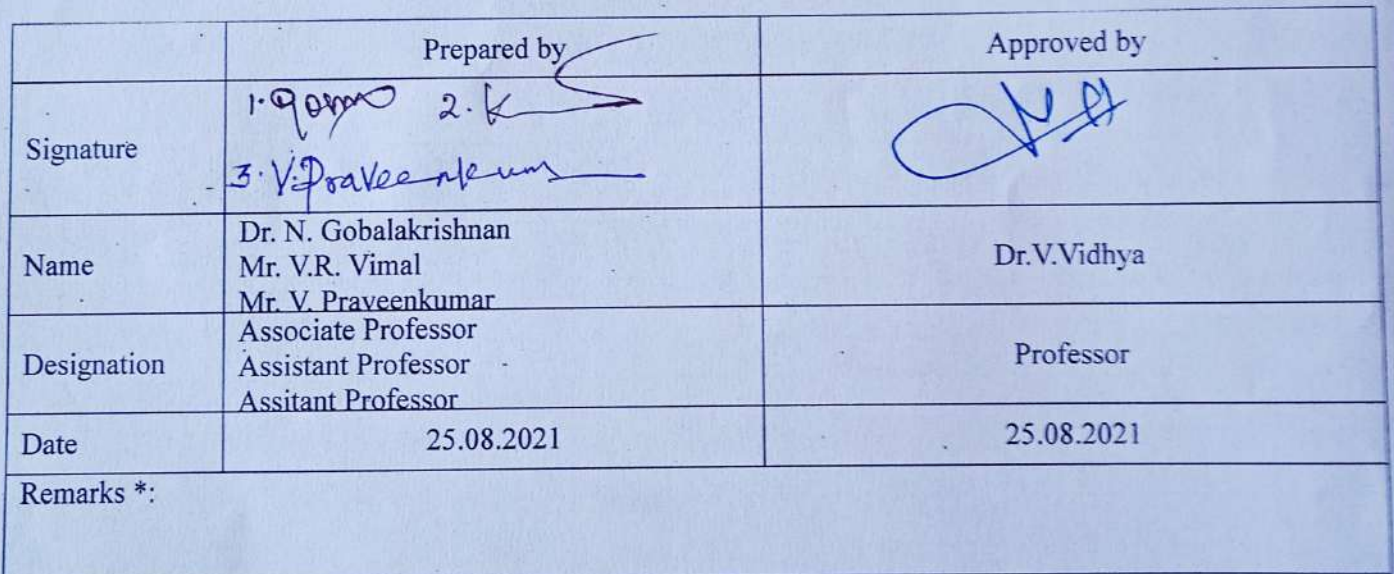 Prepared by
Approved by
Signature
1.
2. K
3. V. Praveenkum
Name
Dr. N. Gobalakrishnan
Mr. V.R. Vimal
Mr. V. Praveenkumar
Dr.V.Vidhya
Designation
Associate Professor
Assistant Professor
Assitant Professor
Professor
Date
25.08.2021
25.08.2021
Remarks *: